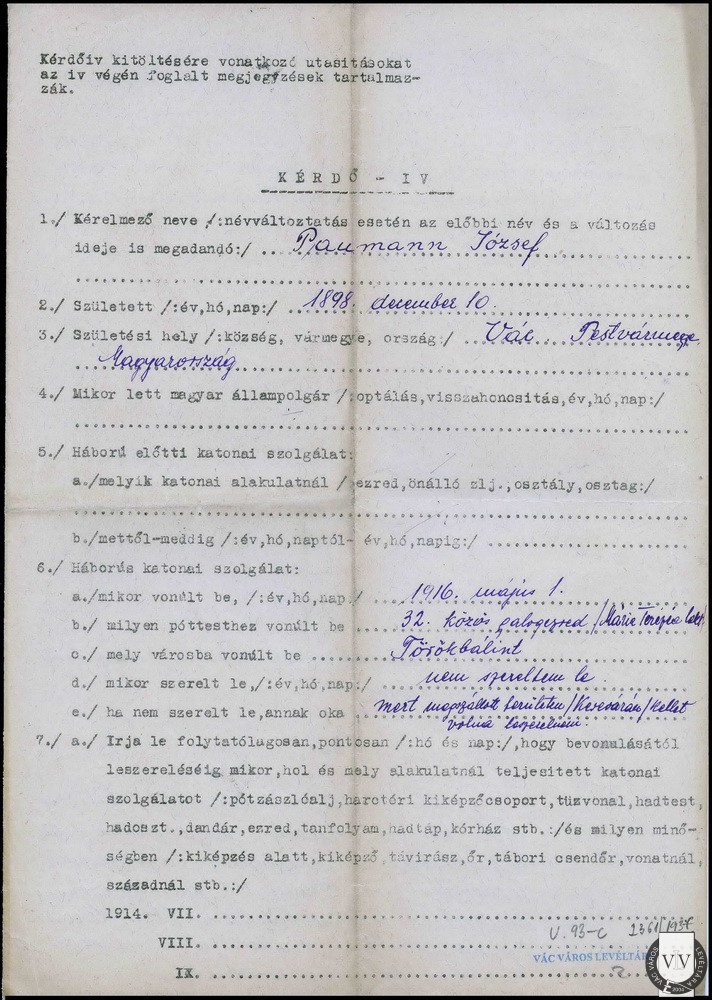 Kérdőiv kitöltésére vonatkozó utasitásokat
az iv végén foglalt megjegyzések tartalmaz-
zák.
KÉRDŐ - IV
1./ Kérelmező neve /:névváltoztatás esetén az előbbi név és a változás
ideje is megadandó:/ ... Paumann József
2./ Született /:év,hó,nap:/ 1898. december 10.
3./ Születési hely /:község, vármegye, ország:/ Vác Pestvármegye
Magyarország
4./ Mikor lett magyar állampolgár /:optálás,visszahonositás,év,hó,nap:/
5./ Háború előtti katonai szolgálat:
a./melyik katonai alakulatnál /:ezred,önálló zlj.,osztály,osztag:/
b./mettől-meddig /:év,hó,naptól- év,hó,napig:/
6./ Háborús katonai szolgálat:
a./mikor vonúlt be, /:év,hó,nap:/ 1916. május 1.
b./ milyen póttesthez vonúlt be 32. közös gyalogezred /Mária Terézia
c./ mely városba vonúlt be Törökbálint
d./ mikor szerelt le,/:év,hó,nap:/ nem szereltem le.
e./ ha nem szerelt le,annak oka mert megszállott területen /Kevevárán/ kellet
volna leszerelnem.
7./ a./ Irja le folytatólagosan,pontosan /:hó és nap:/,hogy bevonulásától
leszereléséig mikor,hol és mely alakulatnál teljesitett katonai
szolgálatot /:pótzászlóalj,harctéri kiképzőcsoport,tüzvonal,hadtest,
hadoszt.,dandár,ezred,tanfolyam,hadtáp,kórház stb.:/és milyen minő-
ségben /:kiképzés alatt,kiképző,távirász,őr,tábori csendőr,vonatnál,
századnál stb.:/
1914. VII.
V. 93-c 1361/1937
VIII.
VÁC VÁROS LEVÉLTÁRA
IX.
VÁC VÁROS LEVÉLTÁRA
VVL
2004